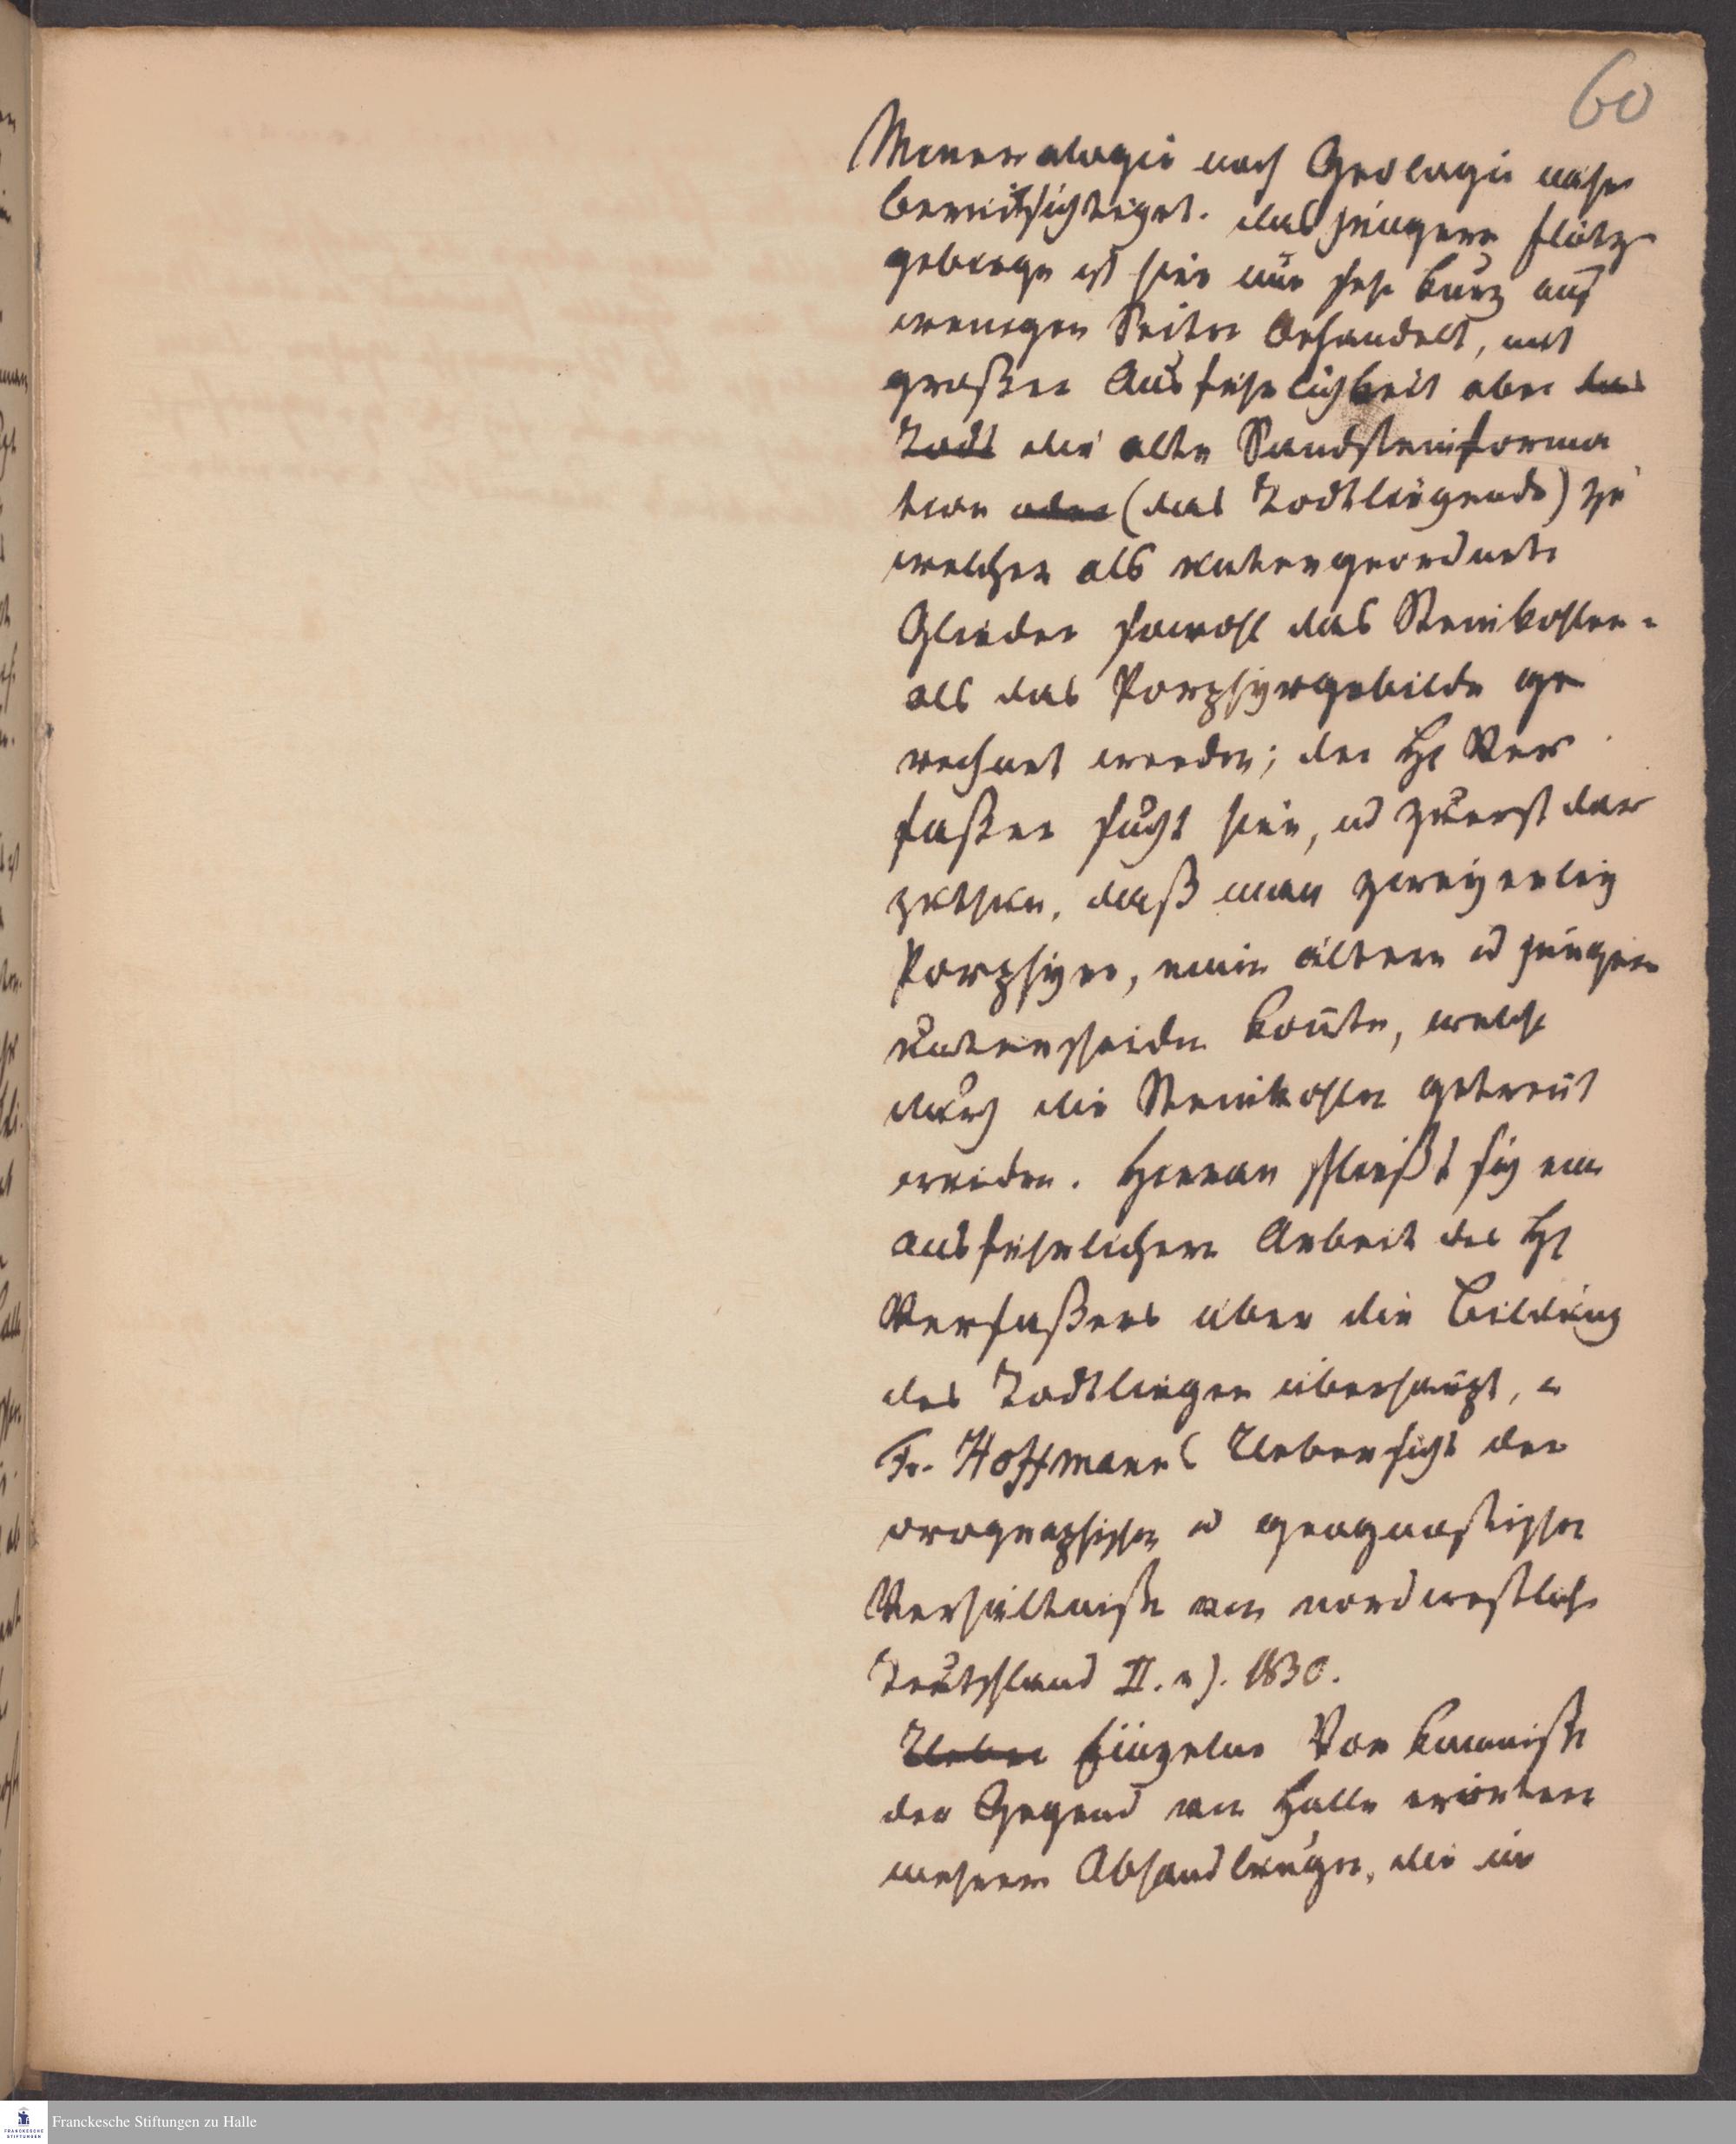 60
Mineralogie noch Geologie näher
berücksichtiget. das jüngere Flötz
gebirge ist hier nur sehr kurz auf
wenigen Seiten behandelt, mit
großer Ausführlichkeit aber das
Todt die alte Sandsteinforma
tion oder (das Todtliegende) zu
welcher als untergeordnete
Glieder sowohl das Steinkohlen-
als das Porphyrgebilde ge
rechnet werden; der H Ver
faßer sucht hier, u zuerst dar
zuthun, daß man zweyerley
Porphyre, einen ältern u jüngern
unterscheiden könnte, welche
durch die Steinkohlen getrennt
würden. Hieran schließt sich eine
ausführlichere Arbeit des H
Verfaßers über die Bildung
des Todtliegen überhaupt, in
Fr. Hoffmanns Uebersicht der
orographischen u geognostischen
Verhältniße vom nordwestliche
Deutschland II. 1830.
Ueber Einzelne Vorkommniße
der Gegend von Halle erörtern
mehrere Abhandlungen, die in
Franckesche Stiftungen zu Halle
FRANCKESCHE
STIFTUNGEN